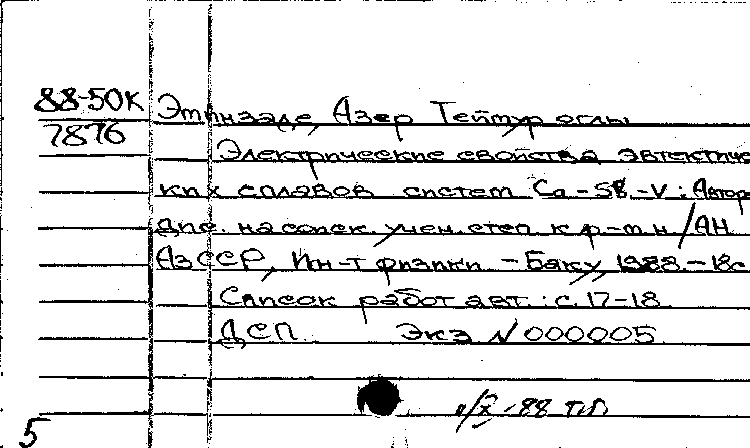 88-50К Этинзаде, Азер Теймур оглы
7876
Электрические свойства эвтектичес
ких сплавов систем -V: Автор
дис. на соиск. учен. степ. к.ф-м.н./АН
АзССР, Ин-т физики. - Баку, 1988. - 18с
Список работ авт.: с. 17-18
ДСП Экз N 000005
88 т.п.
5